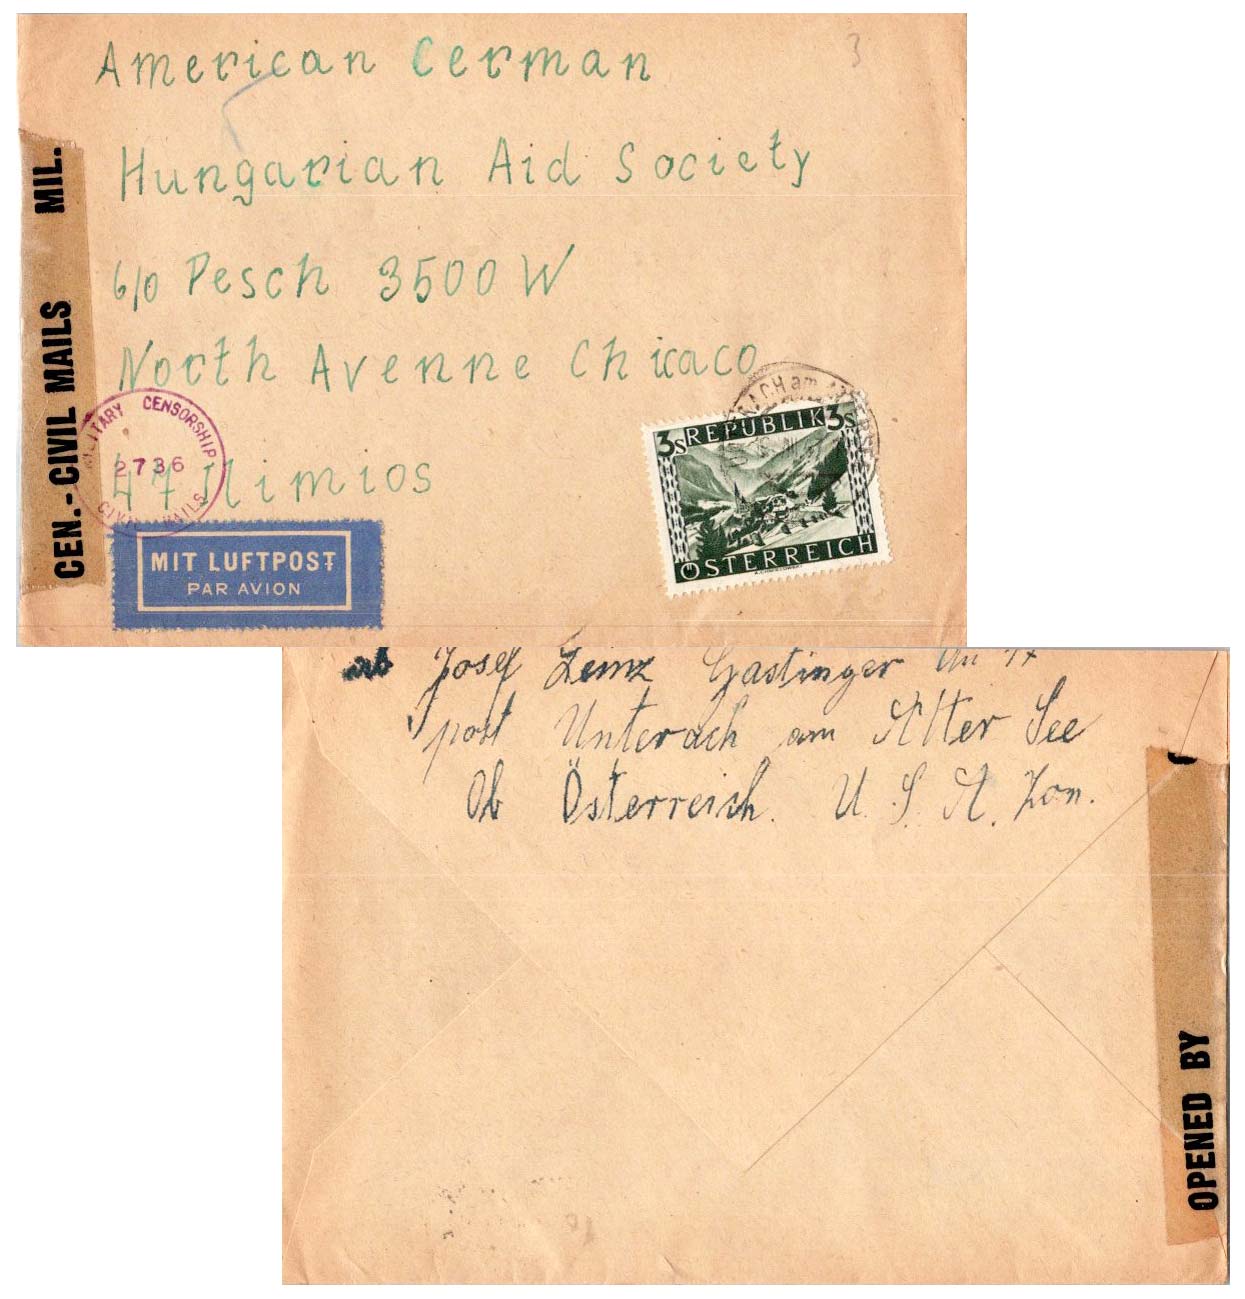 American Cerman
3
Hungarian Aid Society
c/o Pesch 3500 W
North Avenne Chicaco
47 Ilimios
MIL.
CEN.-CIVIL MAILS
MILITARY CENSORSHIP
2736
CIVIL MAILS
MIT LUFTPOST
PAR AVION
UNTERACH am ATTERSEE
3s REPUBLIK 3s
ÖSTERREICH
ab Josef Zemz Gastinger
post Unterach am Atter See
Ob Österreich. U. S. A. Zon.
OPENED BY